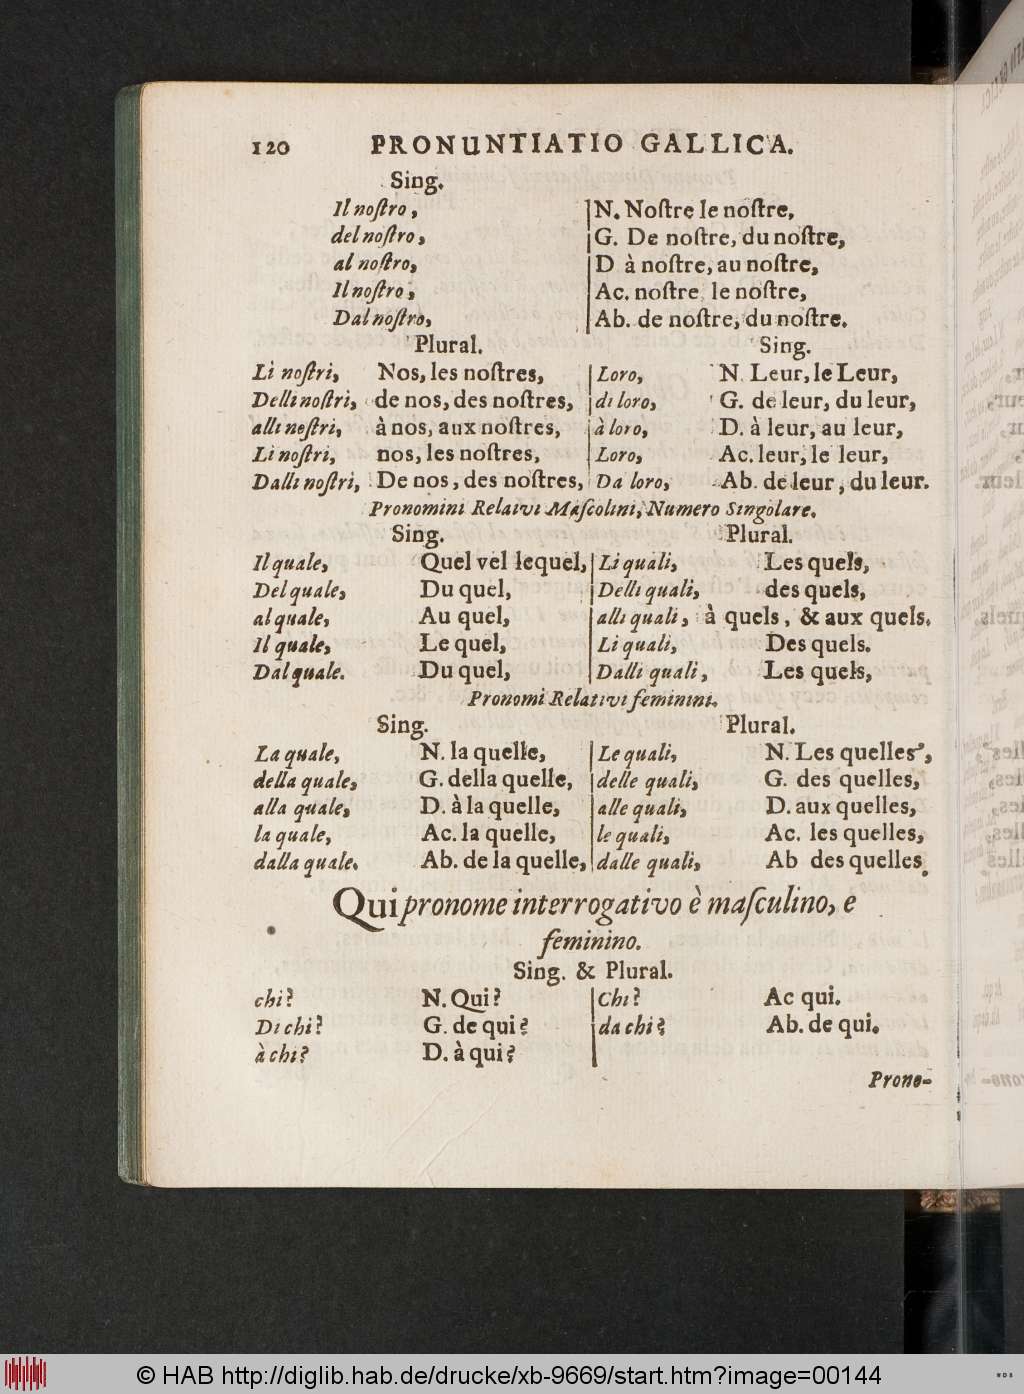 120 PRONUNTIATIO GALLICA.
Sing.
Il noſtro, N. Noſtre le noſtre,
del noſtro, G. De noſtre, du noſtre,
al noſtro, D à noſtre, au noſtre,
Il noſtro, Ac. noſtre le noſtre,
Dal noſtro, Ab. de noſtre, du noſtre.
Plural. Sing.
Li noſtri, Nos, les noſtres, Loro, N Leur, le Leur,
Delli noſtri, de nos, des noſtres, di loro, G. de leur, du leur,
alli noſtri, à nos, aux noſtres, à loro, D. à leur, au leur,
Li noſtri, nos, les noſtres, Loro, Ac. leur, le leur,
Dalli noſtri, De nos, des noſtres, Da loro, Ab. de leur, du leur.
Pronomini Relaivi Maſcolini, Numero Singolare.
Sing. Plural.
Il quale, Quel vel lequel, Li quali, Les quels,
Del quale, Du quel, Delli quali, des quels,
al quale, Au quel, alli quali, à quels, & aux quels.
Il quale, Le quel, Li quali, Des quels.
Dal quale. Du quel, Dalli quali, Les quels,
Pronomi Relativi feminini.
Sing. Plural.
La quale, N. la quelle, Le quali, N. Les quelles,
della quale, G. della quelle, delle quali, G. des quelles,
alla quale, D. à la quelle, alle quali, D. aux quelles,
la quale, Ac. la quelle, le quali, Ac. les quelles,
dalla quale. Ab. de la quelle, dalle quali, Ab des quelles.
Qui pronome interrogativo è maſculino, e
feminino.
Sing. & Plural.
chi? N. Qui? Chi? Ac qui.
Di chi? G. de qui? da chi? Ab. de qui.
à chi? D. à qui?
Prono-
© HAB http://diglib.hab.de/drucke/xb-9669/start.htm?image=00144